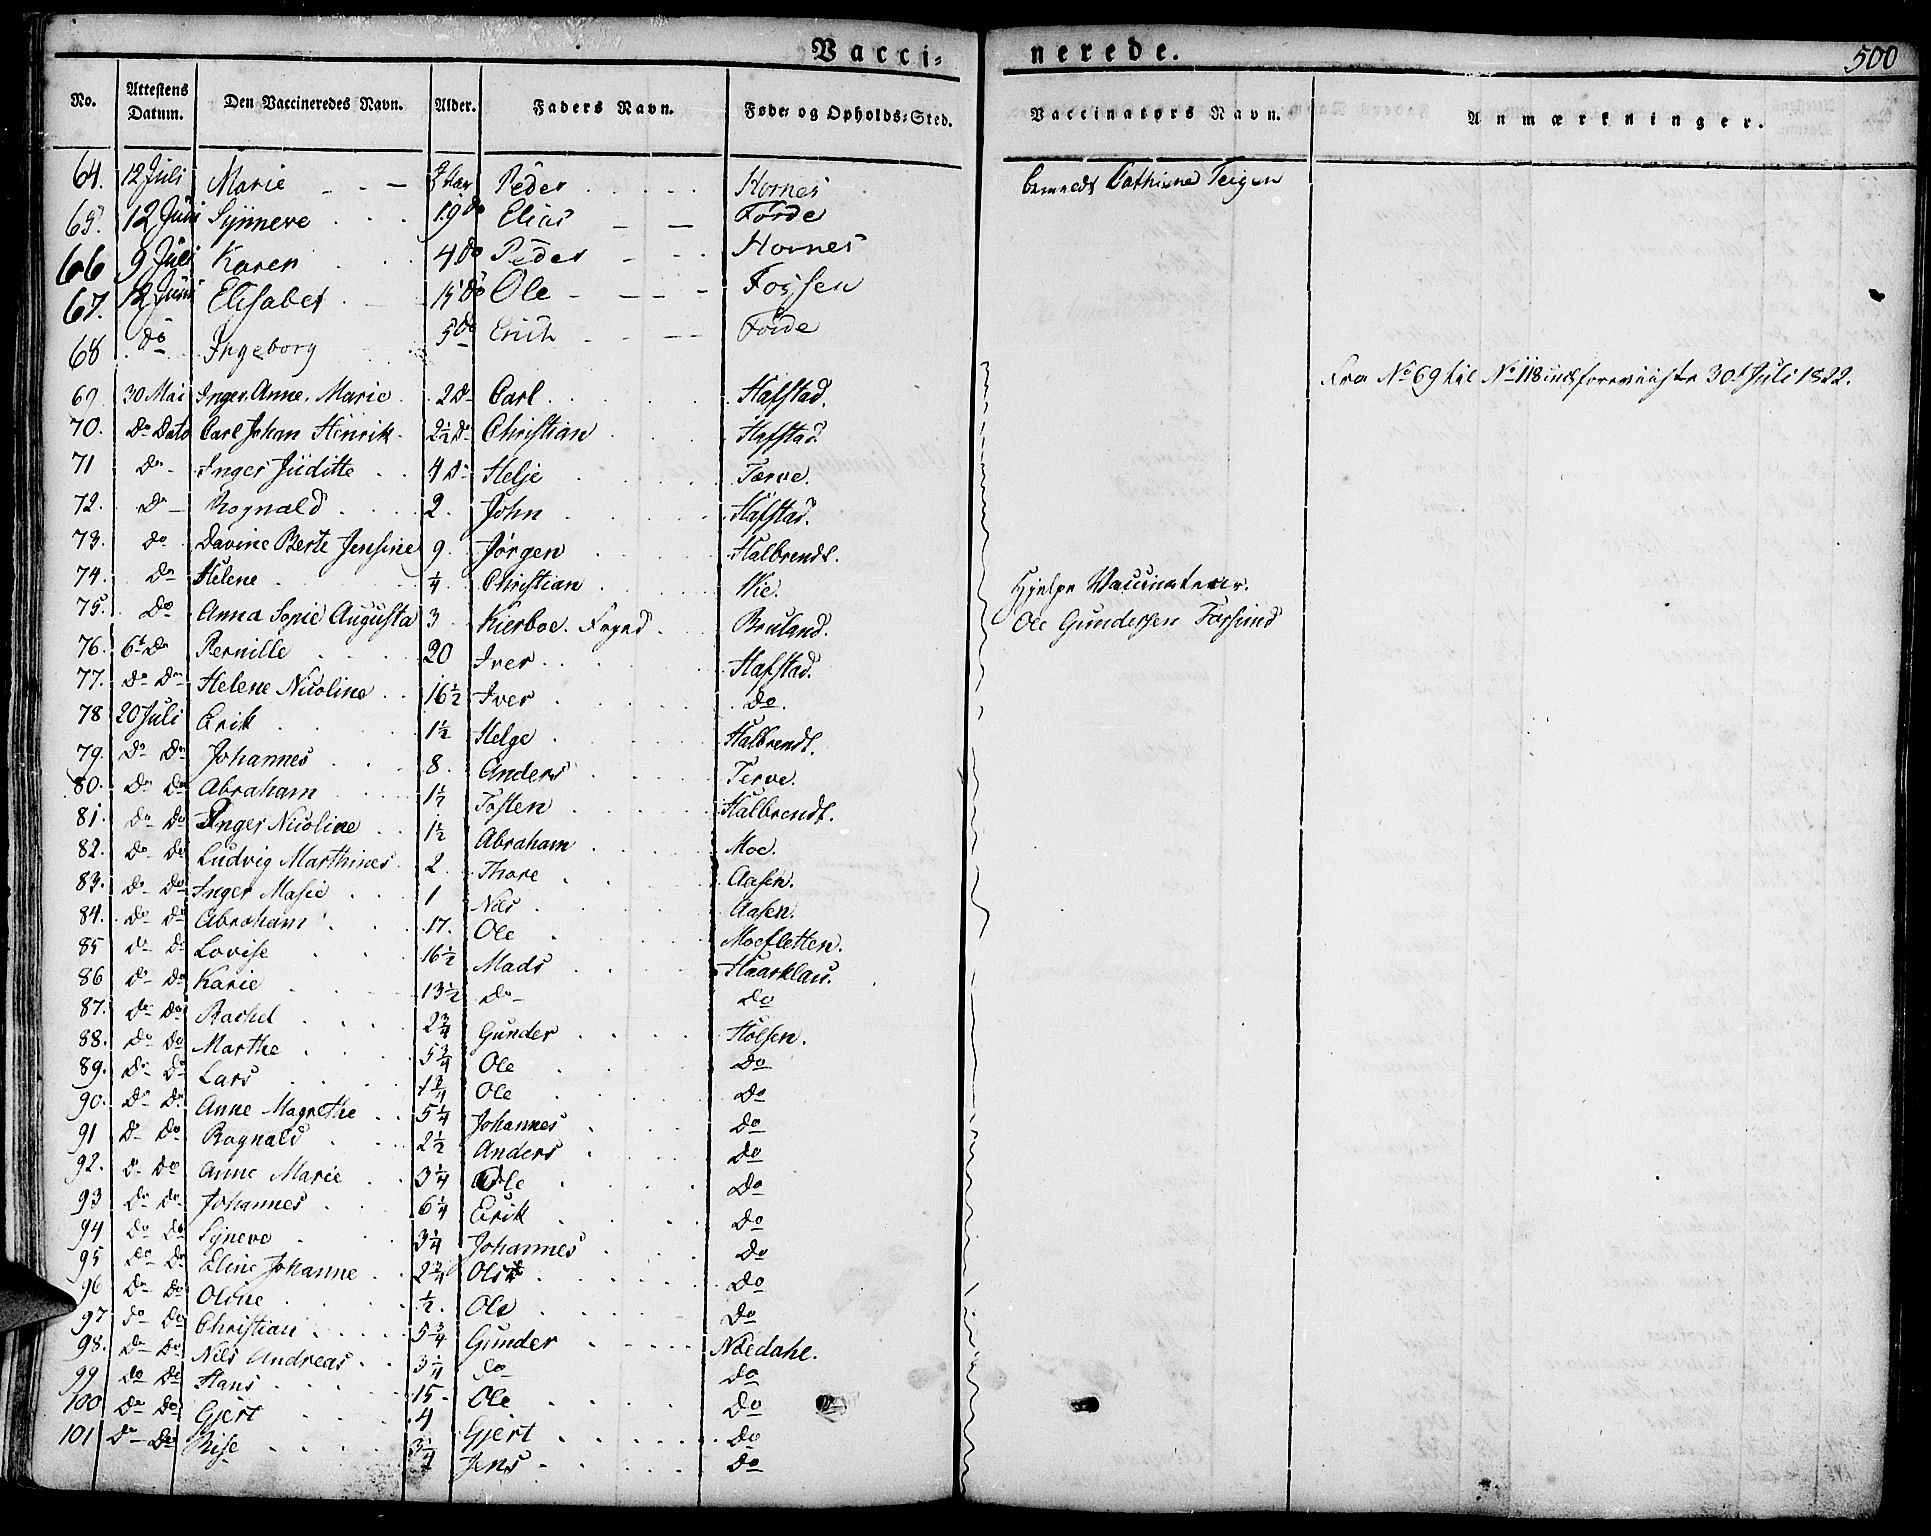 Vacci-nerede. 500
No. Attestens Datum. Den Vaccineredes Navn. Alder. Faders Navn. Føde- og Opholds-Sted. Vaccinatørs Navn. Anmærkninger.
64. 12 Juli Marie Aar Peder Hornes Cathrine Teigen
65. 12 Juli Synneve 19 Do Elias Førde
66 9 Juli Karen 4 Do Peder Hornes
67. 12 Juli Elisabet 15 Do Ole Fossen
68 do Ingeborg 5 Do Erich Førde
Fra No 69 til No 118 incl 30t Juli 1822.
69. 30 Mai Inger Anne Marie 2 D Carl Hafstad.
70. Do Dato Carl Johan Hinrik 2½ D Christian Hafstad
71 Do Inger Júditte 4 D Helje Terve.
72. D Rognald 2. John Hafstad.
73. do Davine Berte Jensine 9 Jørgen Halbrendt.
74. Do Helene ¼ Christian Wie.
Hjelpe Vaccinateur.
75. Do Anna Sopie Augusta 3 Kierboe. Foged Bruland.
Ole Gundersen Farsund
76. 6t Do Pernille 20 Iver Hafstad.
77. Do Do Helene Nicoline 16½ Iver do.
78 20 Juli Erik 1½ Helge Halbrendt.
79. Do Do Johannes 8. Anders Terve.
80. Do Do Abraham 1½ Tosten Halbrendt.
81. do Do Inger Nicoline 1½ Abraham Moe.
82. Do Do Ludvig Marthines 2 Thore Aasen.
83. Do Do Inger Marie 1 Nils Aasen.
84. Do Do Abraham 17. Ole Moesletten.
85 Do D Lovise 16½ Mads Haarklau.
86 Do Do Karie 13½ Do Do
87. Do Do Rachel 2¾ Gunder Holsen.
88. Do Do Marthe 5¾ Ole Do
89. Do Do Lars 1¾ Ole Do
90. Do Do Anne Magrethe 5¼ Johannes Do
91 D Do Rognald 2½ Anders Do
92. D Do Anne Marie 3¼ Ole Do
93 Do Do Johannes 6¼ Erik Do
94 Do Do Syneve 3¼ Johannes Do
95 Do Do Eline Johanne 2¾ Ole Do
96 Do Do Oline ½. Ole Do
97 do Do Christian 5¾ Gunder Nædahl.
98. D Do Nils Andreas 3¼ do do
99 do Do Hans 15 Ole Do
100 Do Do Gjert 4 Gjert Do
101 Do Do 3¼ Jens Do